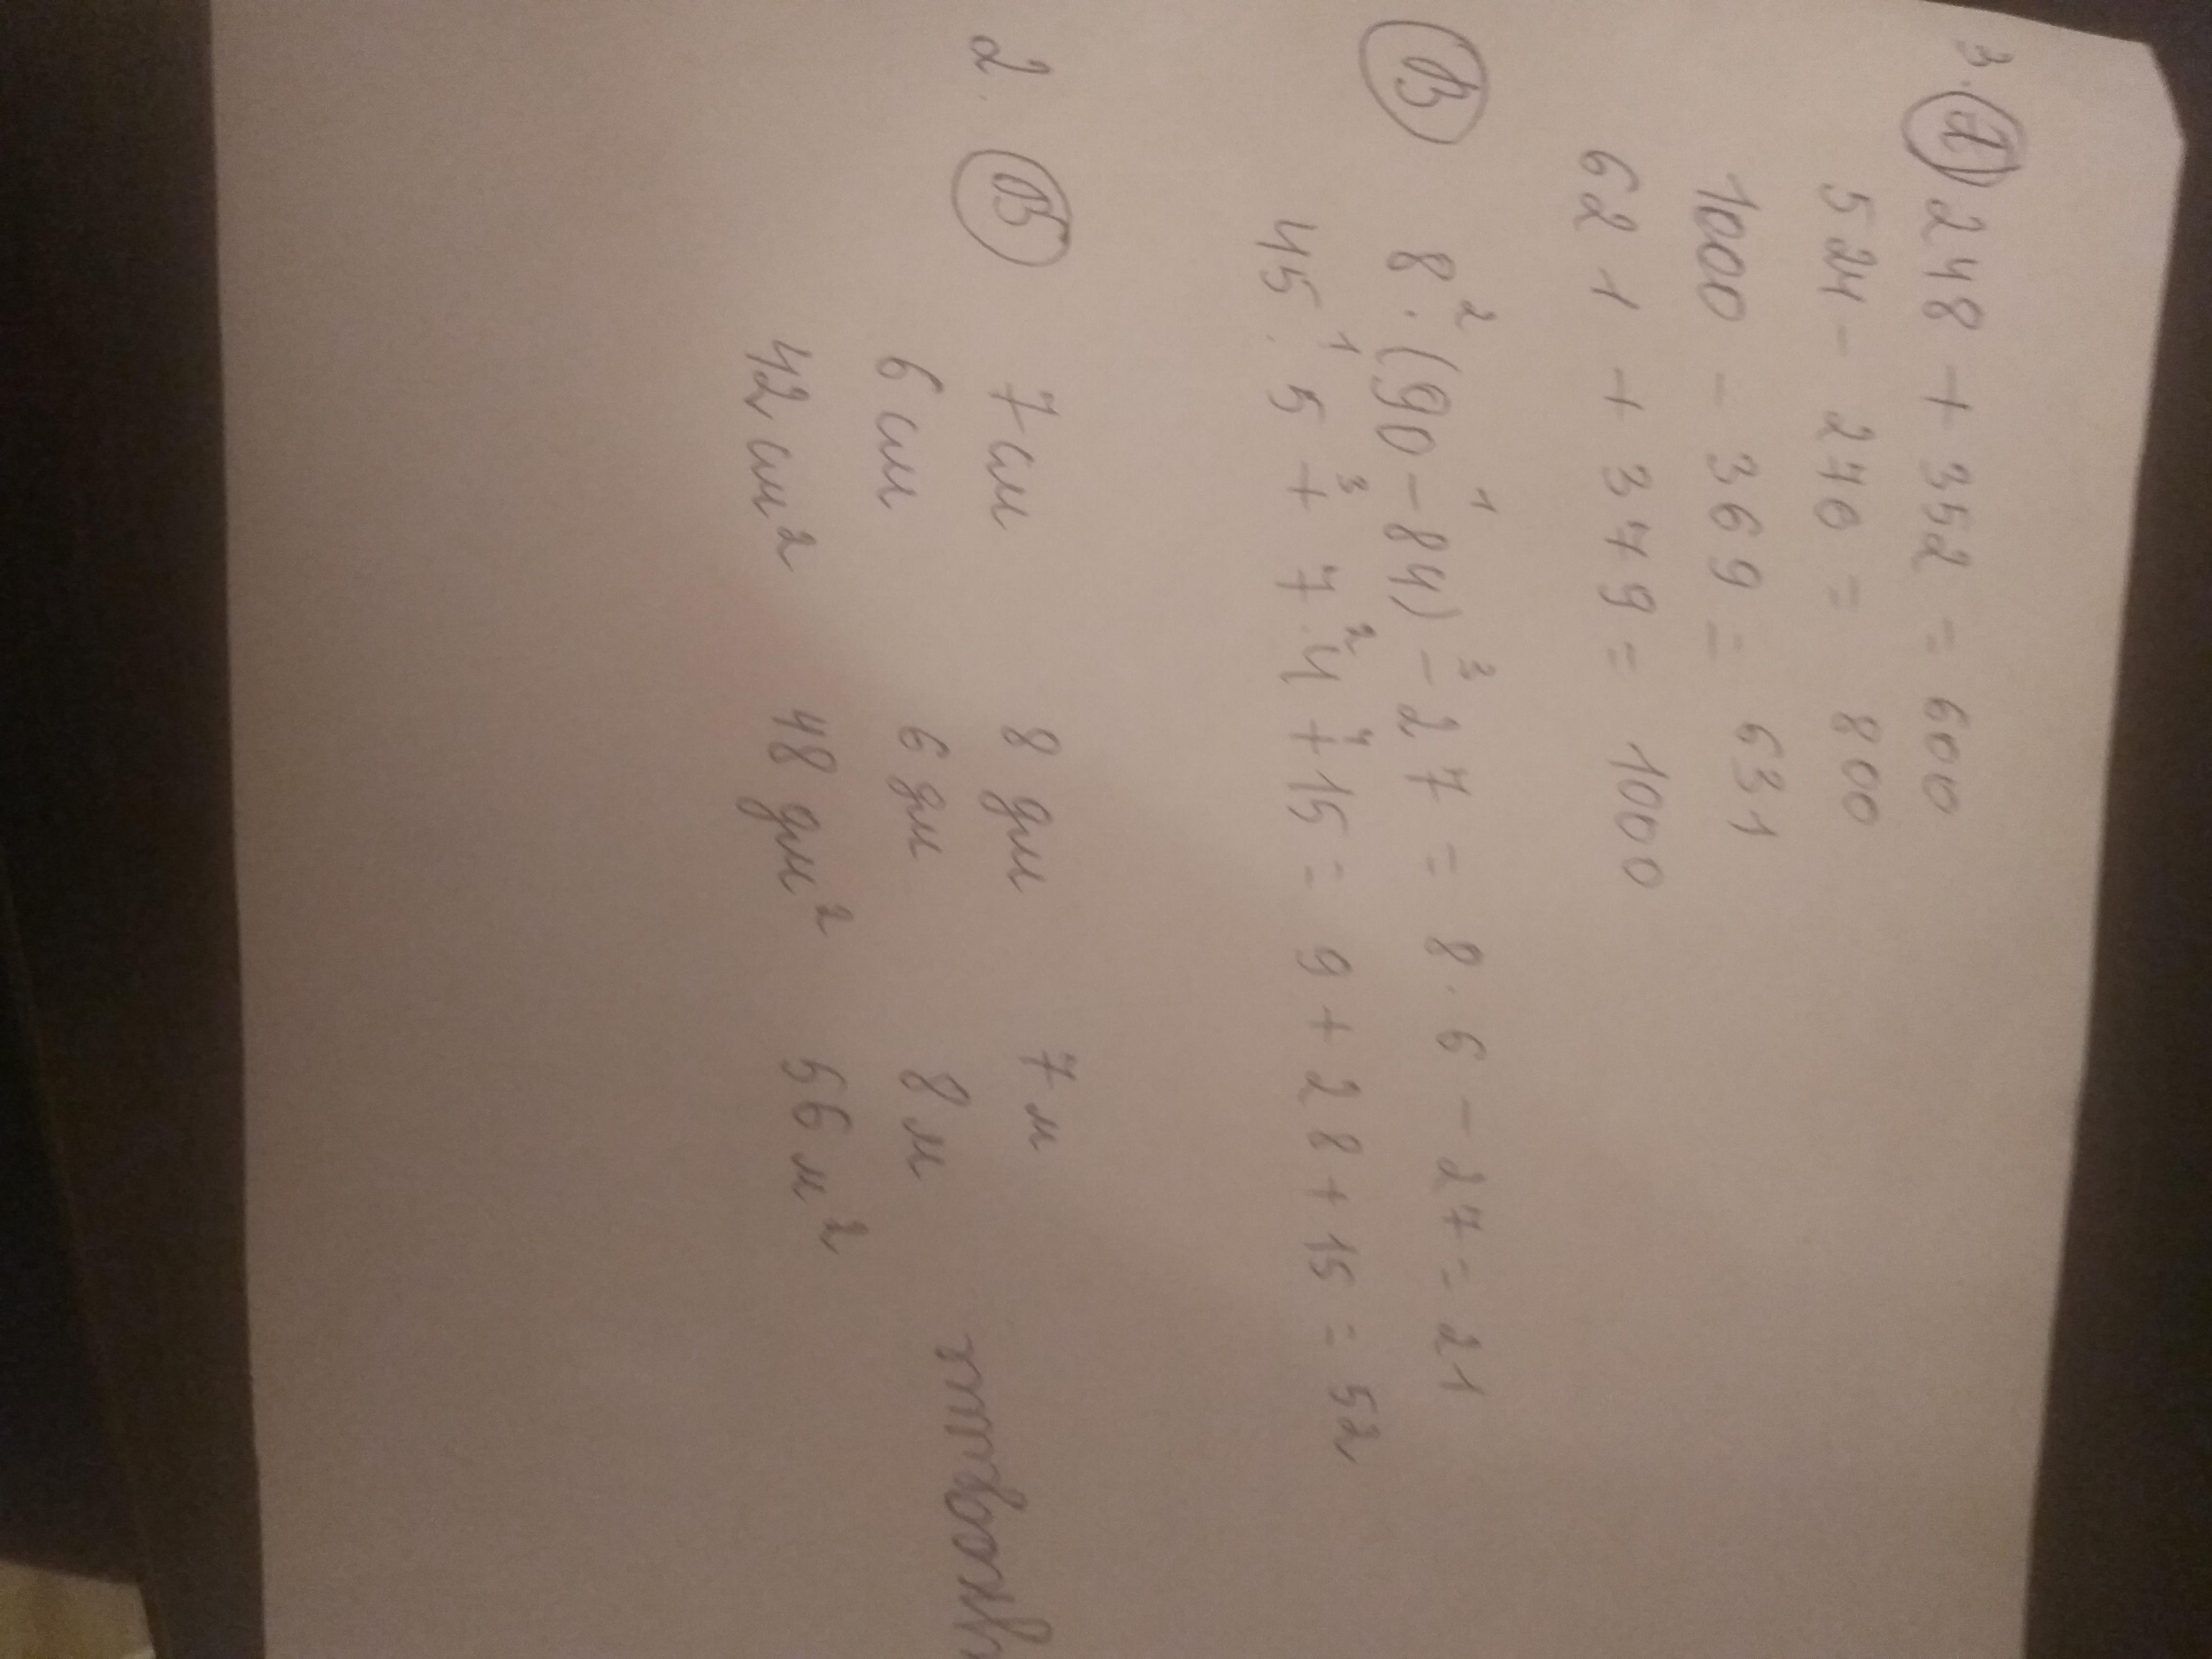 3. А 248 + 352 = 600
524 - 276 = 800
1000 - 369 = 631
621 + 379 = 1000
2 1 3
В 8 · (90 - 84) - 27 = 8 · 6 - 27 = 21
1 3 2 4
45 : 5 + 7 · 4 + 15 = 9 + 28 + 15 = 52
2. В 7 см 8 дм 7 м
6 см 6 дм 8 м
42 см² 48 дм² 56 м²